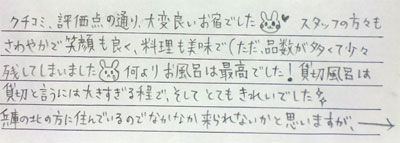 クチコミ、評価点の通り、大変良いお宿でした♥ スタッフの方々も
さわやかで笑顔も良く、料理も美味で(ただ、品数が多くて少々
残してしまいました 何よりお風呂は最高でした!貸切風呂は
貸切と言うには大きすぎる程で、そして とても きれいでした
兵庫の北の方に住んでいるのでなかなか来られないかと思いますが、→